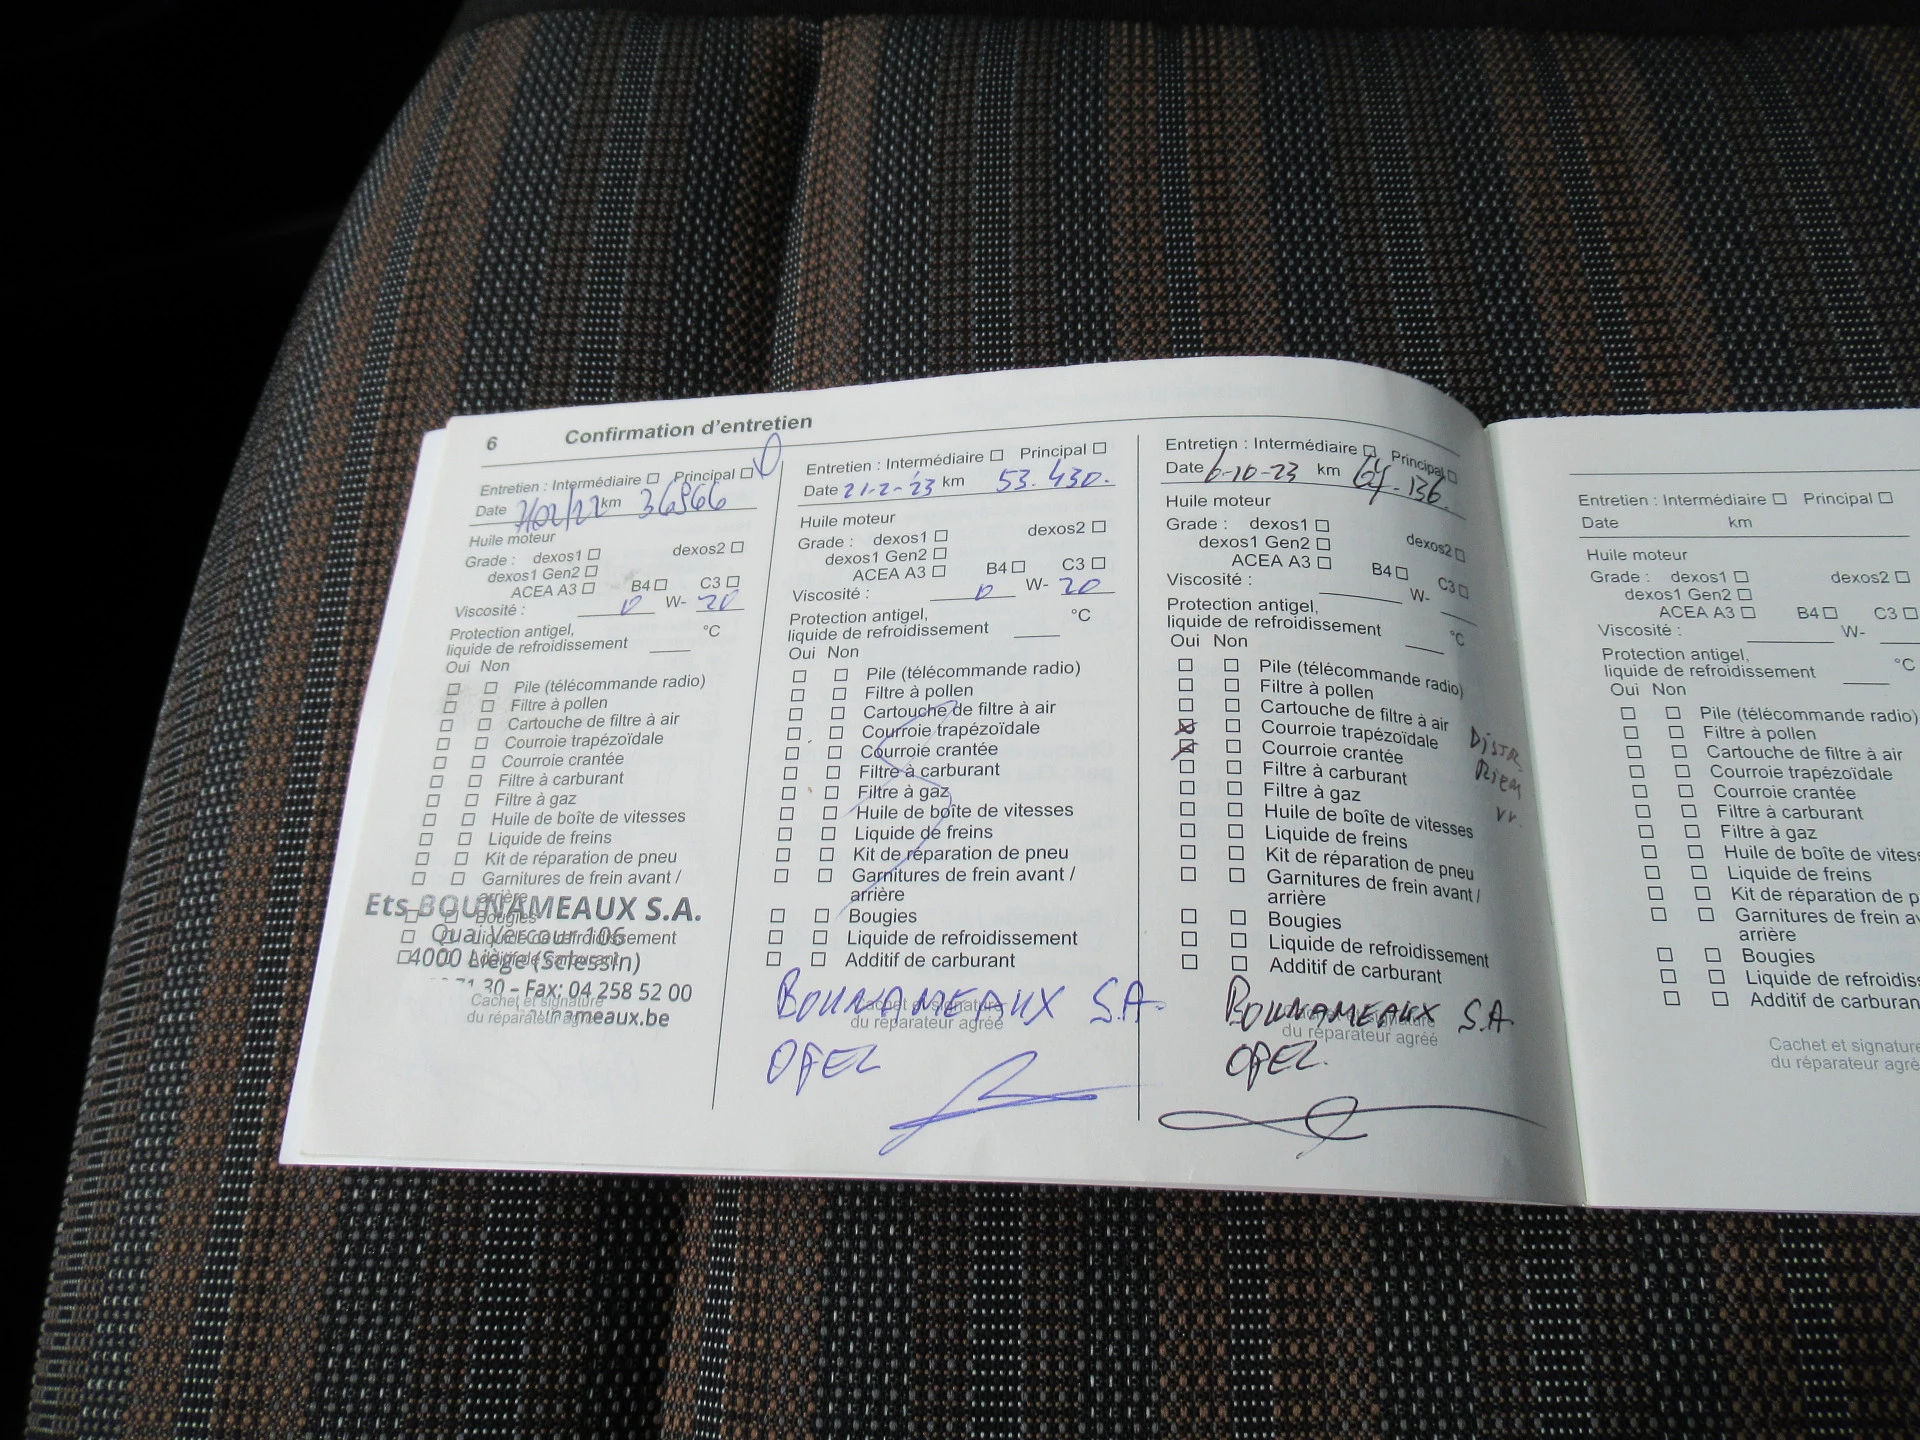 6 Confirmation d'entretien
Entretien : Intermédiaire ☐ Principal ☐
Date 7/02/22 km 36966
Huile moteur
Grade : dexos1 ☐ dexos2 ☐
dexos1 Gen2 ☐
ACEA A3 ☐ B4 ☐ C3 ☐
Viscosité : 0 W- 20
Protection antigel,
liquide de refroidissement ____ °C
Oui Non
☐ ☐ Pile (télécommande radio)
☐ ☐ Filtre à pollen
☐ ☐ Cartouche de filtre à air
☐ ☐ Courroie trapézoïdale
☐ ☐ Courroie crantée
☐ ☐ Filtre à carburant
☐ ☐ Filtre à gaz
☐ ☐ Huile de boîte de vitesses
☐ ☐ Liquide de freins
☐ ☐ Kit de réparation de pneu
☐ ☐ Garnitures de frein avant /
arrière
☐ ☐ Bougies
☐ ☐ Liquide de refroidissement
☐ ☐ Additif de carburant
Ets BOUNAMEAUX S.A.
Quai Vercour 106
4000 Liège (Sclessin)
71 30 - Fax: 04 258 52 00
ounameaux.be
Cachet et signature
du réparateur agréé
Entretien : Intermédiaire ☐ Principal ☐
Date 21-2-23 km 53.430.
Huile moteur
Grade : dexos1 ☐ dexos2 ☐
dexos1 Gen2 ☐
ACEA A3 ☐ B4 ☐ C3 ☐
Viscosité : 0 W- 20
Protection antigel,
liquide de refroidissement ____ °C
Oui Non
☐ ☐ Pile (télécommande radio)
☐ ☐ Filtre à pollen
☐ ☐ Cartouche de filtre à air
☐ ☐ Courroie trapézoïdale
☐ ☐ Courroie crantée
☐ ☐ Filtre à carburant
☐ ☐ Filtre à gaz
☐ ☐ Huile de boîte de vitesses
☐ ☐ Liquide de freins
☐ ☐ Kit de réparation de pneu
☐ ☐ Garnitures de frein avant /
arrière
☐ ☐ Bougies
☐ ☐ Liquide de refroidissement
☐ ☐ Additif de carburant
BOUNAMEAUX S.A.
Cachet et signature
du réparateur agréé
OPEL
Entretien : Intermédiaire ☐ Principal ☐
Date 6-10-23 km 64.136
Huile moteur
Grade : dexos1 ☐ dexos2 ☐
dexos1 Gen2 ☐
ACEA A3 ☐ B4 ☐ C3 ☐
Viscosité : ____ W- ____
Protection antigel,
liquide de refroidissement ____ °C
Oui Non
☐ ☐ Pile (télécommande radio)
☐ ☐ Filtre à pollen
☐ ☐ Cartouche de filtre à air
☒ ☐ Courroie trapézoïdale
☒ ☐ Courroie crantée
☐ ☐ Filtre à carburant
☐ ☐ Filtre à gaz
☐ ☐ Huile de boîte de vitesses
☐ ☐ Liquide de freins
☐ ☐ Kit de réparation de pneu
☐ ☐ Garnitures de frein avant /
arrière
☐ ☐ Bougies
☐ ☐ Liquide de refroidissement
☐ ☐ Additif de carburant
BOUNAMEAUX S.A
Cachet et signature
du réparateur agréé
OPEL.
Entretien : Intermédiaire ☐ Principal ☐
Date km
Huile moteur
Grade : dexos1 ☐ dexos2 ☐
dexos1 Gen2 ☐
ACEA A3 ☐ B4 ☐ C3 ☐
Viscosité : ____ W-
Protection antigel,
liquide de refroidissement ____ °C
Oui Non
☐ ☐ Pile (télécommande radio)
☐ ☐ Filtre à pollen
☐ ☐ Cartouche de filtre à air
☐ ☐ Courroie trapézoïdale
☐ ☐ Courroie crantée
☐ ☐ Filtre à carburant
☐ ☐ Filtre à gaz
☐ ☐ Huile de boîte de vitess
☐ ☐ Liquide de freins
☐ ☐ Kit de réparation de p
☐ ☐ Garnitures de frein av
arrière
☐ ☐ Bougies
☐ ☐ Liquide de refroidiss
☐ ☐ Additif de carburan
Cachet et signature
du réparateur agré